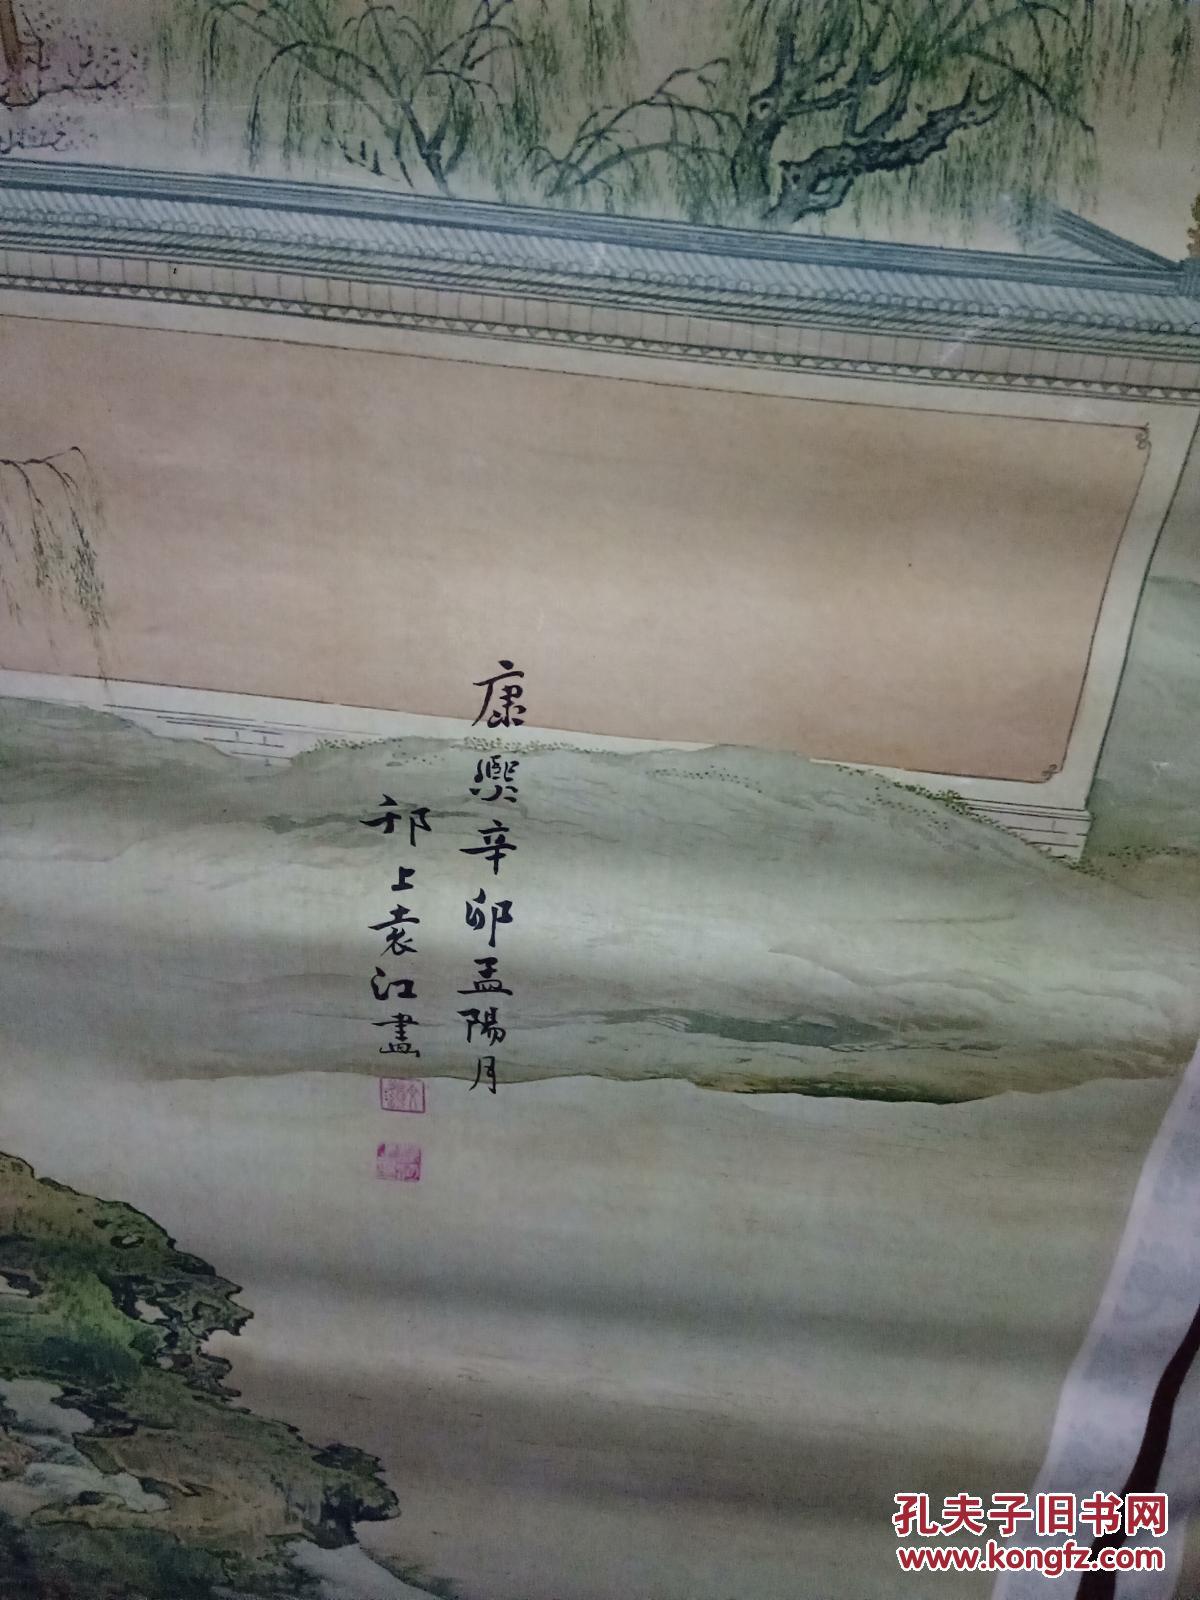 康熙辛卯孟陽月
邗上袁江畫
孔夫子旧书网
www.kongfz.com